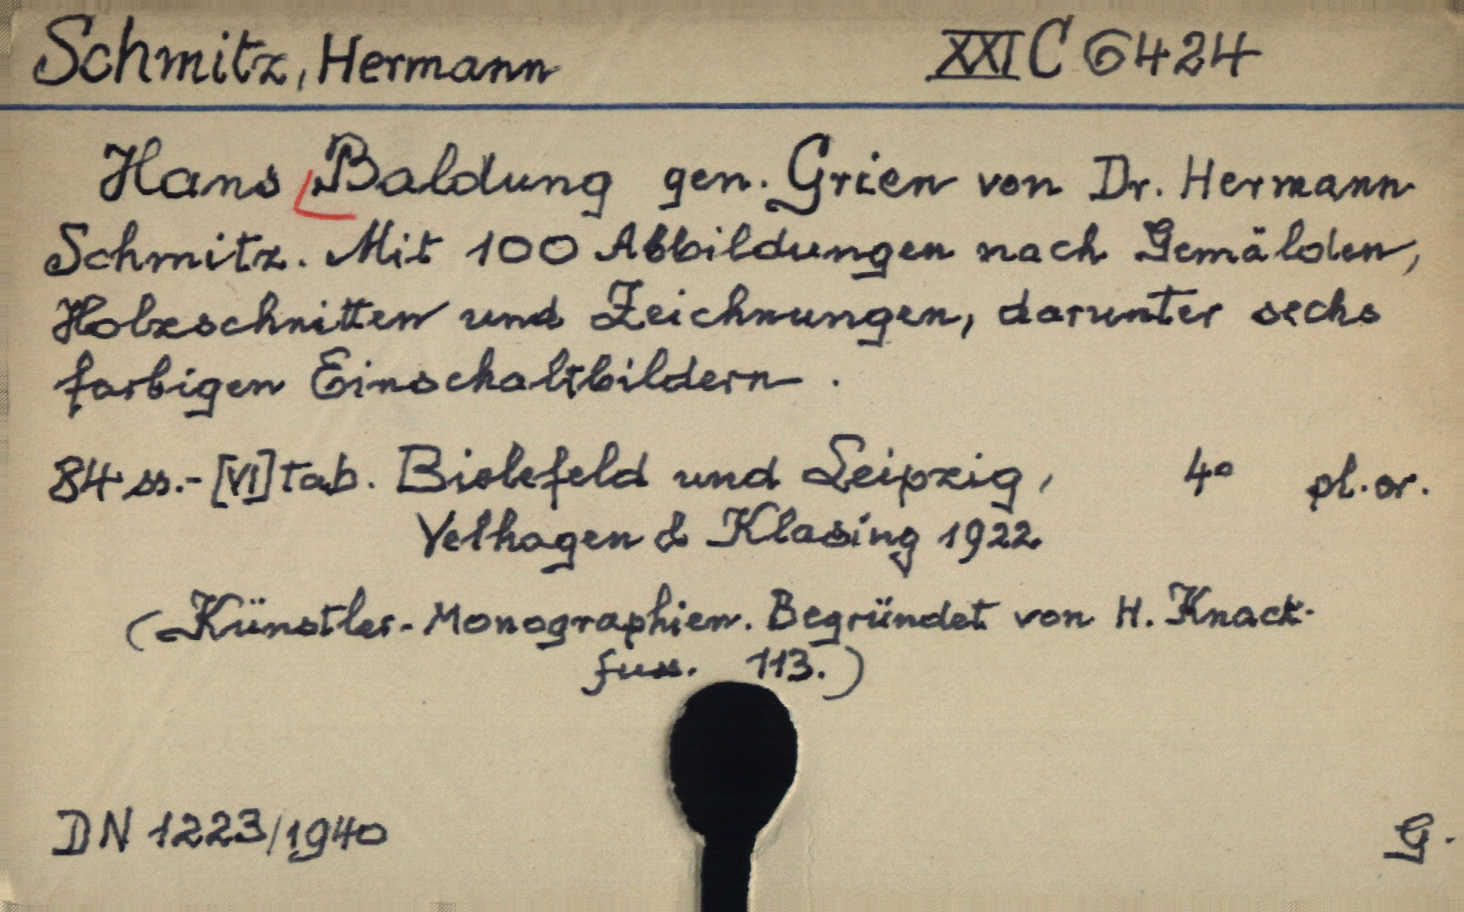 Schmitz, Hermann XXI C 6424
Hans Baldung gen. Grien von Dr. Hermann
Schmitz. Mit 100 Abbildungen nach Gemälden,
Holzschnitten und Zeichnungen, darunter sechs
farbigen Einschaltbildern.
84 ss.-[VI] tab. Bielefeld und Leipzig, 4° pl. or.
Velhagen & Klasing 1922
(Künstler-Monographien. Begründet von H. Knack-
fuss. 113.)
DN 1223/1940 G.